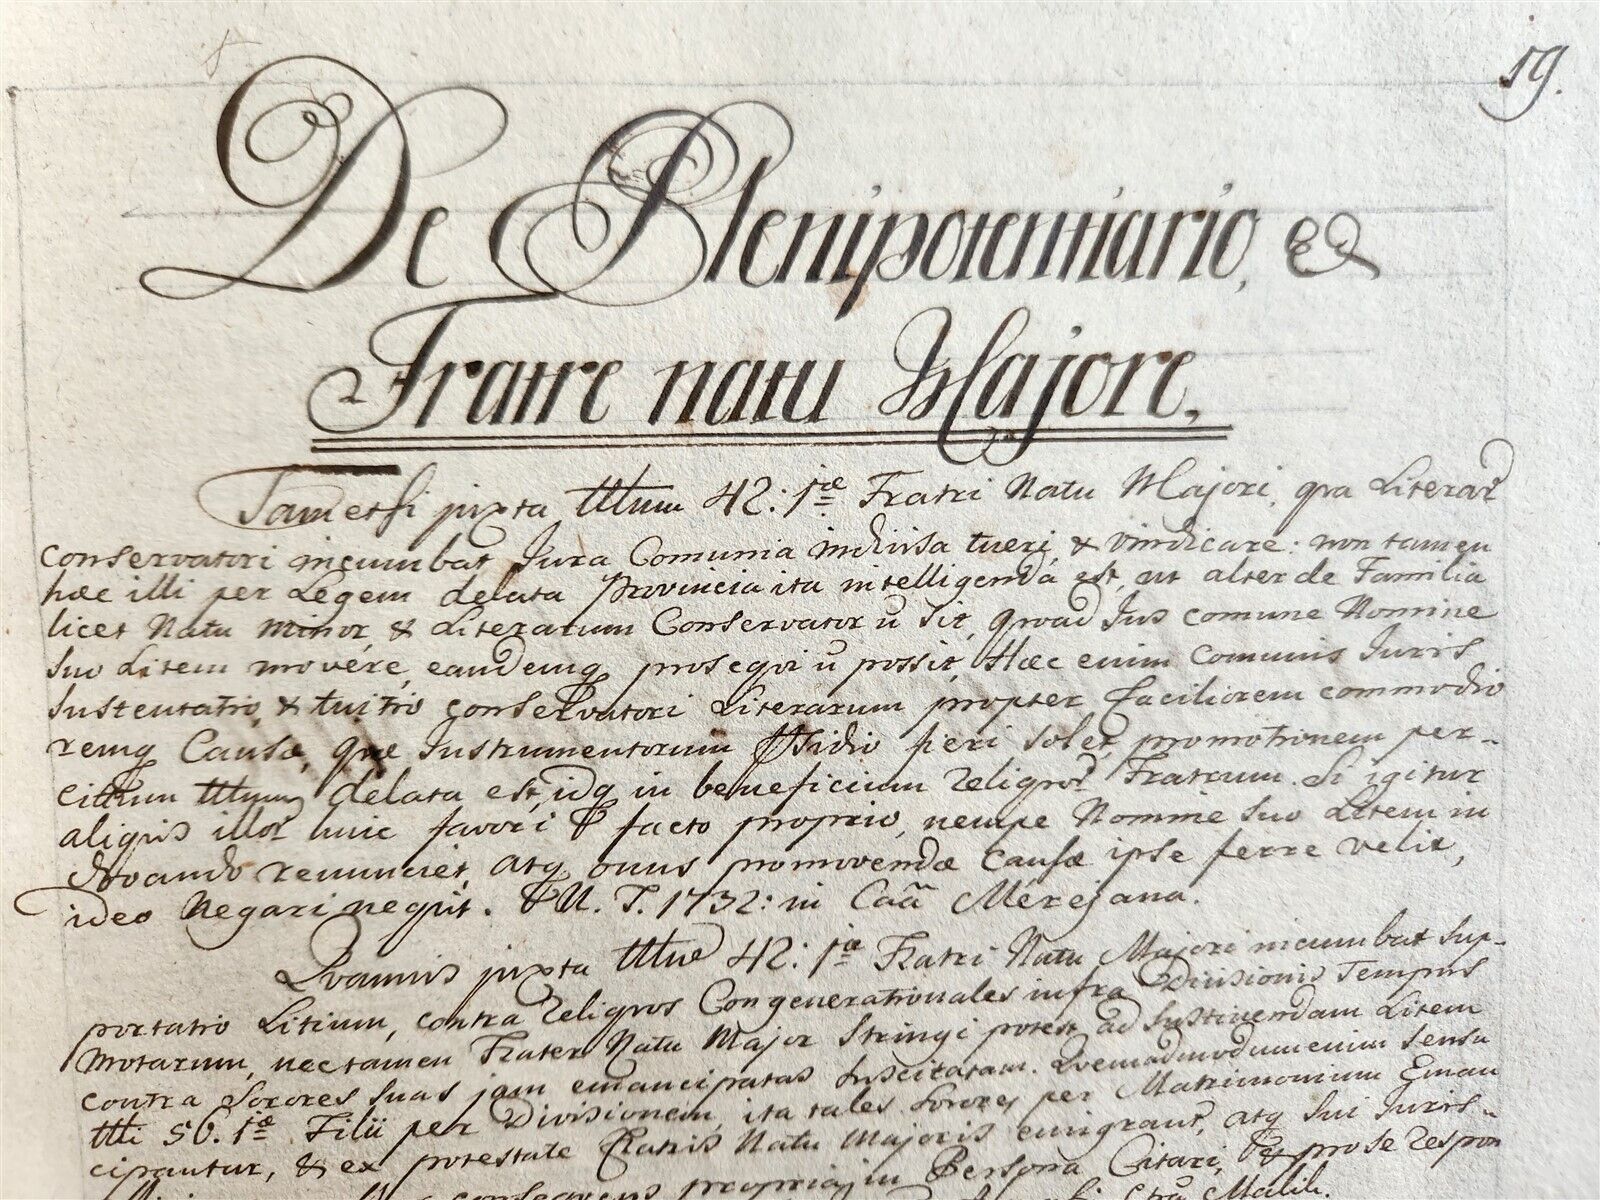 19.
De Plenipotentiario, &
Fratre natu Majore,
Tametsi juxta ttlum 42: 1æ Fratri Natu Majori, qua Literar̄
conservatori incumbat Jura Comunia indivisa tueri, & vindicare: non tamen
hæc illi per Legem delata Provincia ita intelligenda est, ut alter de Familia
licet Natu minor, & Literarum Conservator ū sit, quoad Jus comune Nomine
suo Litem movére, eandemq prosequi ū possit, Hæc enim Comunis Juris
sustentatio, & tuitio conservatori Literarum propter faciliorem commodio
remq Causæ, quæ Instrumentorum fieri solet, promotionem per
ttlum delata est, idq in beneficium religior̄ Fratrum. Si igitur
aliquis illor̄ huic favori facto proprio, nempe Nomine suo Litem in
choando renunciet, atq onus promovendæ Causæ ipse ferre velit,
ideo Negari nequit. T. 1732: in Caā Mérejana.
Quamvis juxta 42: 1æ Fratri Natu Majori incumbat sup-
portatio Litium, contra religuos Congenerationales infra Divisionis Tempus
motarum, nec tamen Frater Natu Major stringi potest ad sustinendam Litem
contra Sorores suas jam emancipatas suscitatam. Quemadmodum enim sensu
ttli 56. 1æ Filii per Divisionem, ita tales Sorores per Matrimonium Eman
cipantur, & ex potestate Fratris Natu Majoris emigrant, atq sui Juris
consequens propria in Persona Citari, & pro se respon
Ctrā Malik.